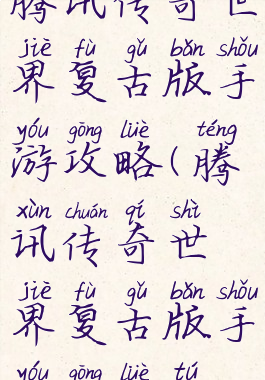 腾讯传奇世
jiè fù gǔ bǎn shǒu
界复古版手
yóu gōng lüè téng
游攻略(腾
xùn chuán qí shì
讯传奇世
jiè fù gǔ bǎn shǒu
界复古版手
yóu gōng lüè tú